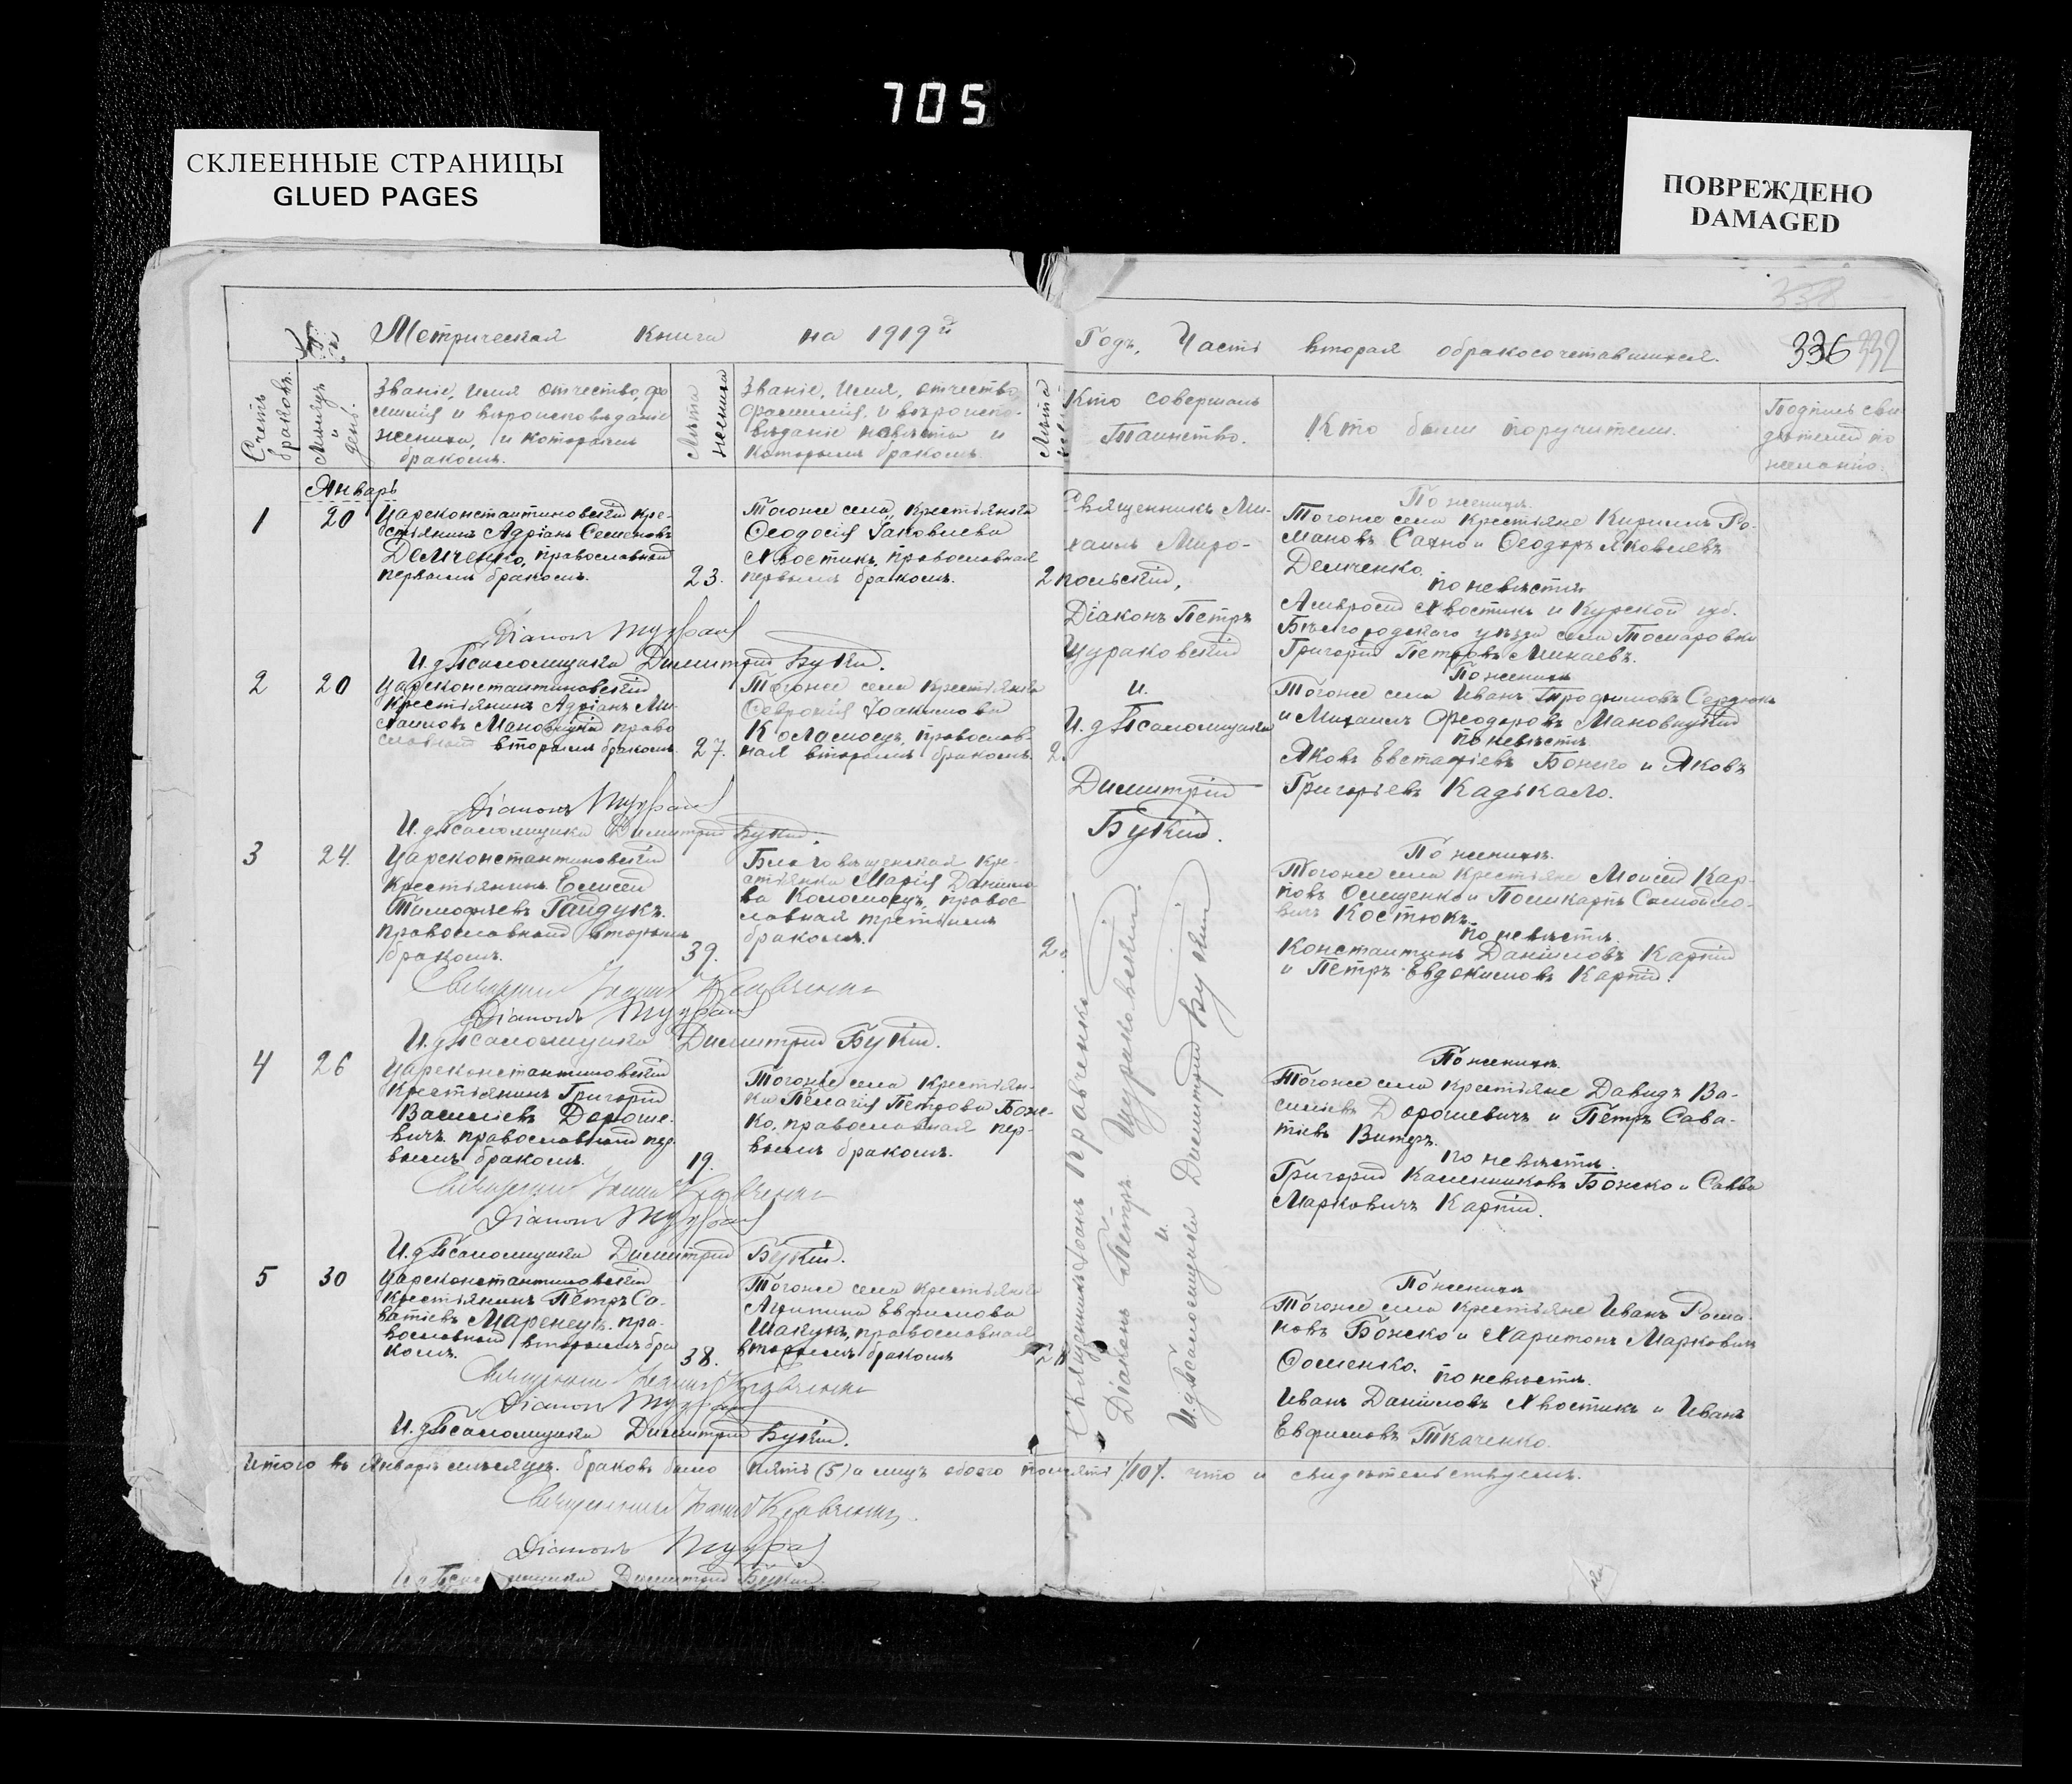 705
СКЛЕЕННЫЕ СТРАНИЦЫ
GLUED PAGES
ПОВРЕЖДЕНО
DAMAGED
Метрическая книга на 1919й
Годъ, Часть вторая о бракосочетавшихся. 336 332
Счетъ браковъ.
Мѣсяцъ и день.
Званіе, имя отчество, фа-
милія и вѣроисповѣданіе
жениха, и которымъ
бракомъ.
Лѣта жениха
Званіе, имя, отчество
фамилія, и вѣроиспо-
вѣданіе невѣсты и
которымъ бракомъ.
Лѣта
Кто совершалъ
Таинство.
Кто были поручители.
Подпись сви
дѣтелей по
желанію.
Январь
1 20
Цареконстантиновскій кре-
стьянинъ Адріанъ Семеновъ
Демченко, православный
первымъ бракомъ. 23.
Тогоже села крестьянка
Ѳеодосія Іаковлева
Хвостикъ, православная
первымъ бракомъ. 2
Священникъ Ми-
хаилъ Миро-
польскій,
Діаконъ Петръ
Щураковскій
и
И. д Псаломщика
Димитрій
Букій.
По женихѣ.
Тогоже села крестьяне Кириллъ Ро-
мановъ Сахно и Ѳеодоръ Яковлевъ
Демченко.
по невѣстѣ
Амвросій Хвостикъ и Курской губ.
Бѣлгородскаго уѣзда села Томаровки
Григорій Петровъ Минаевъ.
Діаконъ
И. д Псаломщика Димитрій Букій.
2 20
Цареконстантиновскій
крестьянинъ Адріанъ Ми-
хаиловъ Мановицкій право
славный вторымъ бракомъ 27.
Тогоже села крестьянка
Іоакимова
Коломоецъ, православ-
ная вторымъ бракомъ. 2
По женихѣ
Тогоже села Иванъ Трофимовъ Сердюкъ
и Михаилъ Ѳеодоровъ Мановицкій
по невѣстѣ
Яковъ Евстафіевъ Божко и Яковъ
Григорьевъ Кадькало.
Діаконъ
И. д Псаломщика Димитрій Букій.
3 24.
Цареконстантиновскій
крестьянинъ Елисей
Тимофѣевъ Гайдукъ.
православный вторымъ
бракомъ. 39.
Благовѣщенская кре-
стьянка Марія Даніило-
ва Коломоецъ, правос-
лавная третьимъ
бракомъ. 2
По женихѣ.
Тогоже села крестьяне Моисей Кар-
повъ Онищенко и Поликарпъ Самойло-
вичъ Костюкъ.
по невѣстѣ
Константинъ Даніиловъ Карпій
и Петръ Евдокимовъ Карпій.
Священникъ Іоаннъ Кравченко
Діаконъ
И. д Псаломщика Димитрій Букій.
4 26
Цареконстантиновскій
крестьянинъ Григорій
Василіевъ Дороше-
вичъ. православный пер
вымъ бракомъ. 19.
Тогоже села крестьян-
ка Пелагія Петрова Бож-
ко, православная пер-
вымъ бракомъ.
По женихѣ.
Тогоже села крестьяне Давидъ Ва-
силіевъ Дорошевичъ и Петръ Сава-
тіевъ
по невѣстѣ.
Григорій Калинниковъ Божко и Савва
Марковичъ Карпій.
Священникъ Іоаннъ Кравченко
Діаконъ
И. д Псаломщика Димитрій Букій.
5 30
Цареконстантиновскій
крестьянинъ Петръ Са-
ватіевъ Маренецъ. пра-
вославный вторымъ бра
комъ. 38.
Тогоже села крестьянка
Агрипина Евфимова
Шакунъ, православная
вторымъ бракомъ 2
По женихѣ
Тогоже села крестьяне Иванъ Рома-
новъ Божко и Харитонъ Марковичъ
Ѳоменко. по невѣстѣ.
Иванъ Даніиловъ Хвостикъ и Иванъ
Евфимовъ Ткаченко.
Священникъ Іоаннъ Кравченко
Діаконъ
И. д Псаломщика Димитрій Букій.
Священникъ Іоанъ Кравченко
Діаконъ Петръ Щураковскій.
и
И. д Псаломщика Димитрій Букій
Итого въ Январѣ мѣсяцѣ браковъ было пять (5) а лицъ обоего пола /10/. что и свидѣтельствуемъ.
Священникъ Іоаннъ Кравченко
Діаконъ
Димитрій Букій.